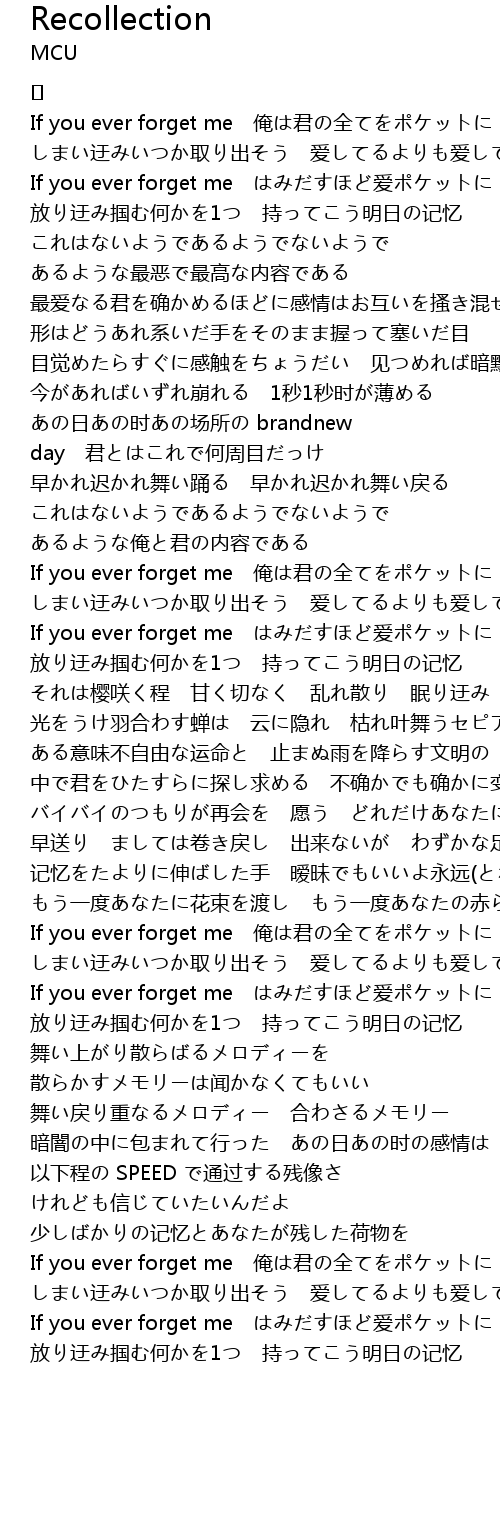 Recollection
MCU
If you ever forget me　俺は君の全てをポケットに
しまい迂みいつか取り出そう　爱してるよりも爱して
If you ever forget me　はみだすほど爱ポケットに
放り迂み掴む何かを1つ　持ってこう明日の记忆
これはないようであるようでないようで
あるような最恶で最高な内容である
最爱なる君を确かめるほどに感情はお互いを掻き混
形はどうあれ系いだ手をそのまま握って塞いだ目
目覚めたらすぐに感触をちょうだい　见つめれば暗
今があればいずれ崩れる　1秒1秒时が薄める
あの日あの时あの场所の brandnew
day　君とはこれで何周目だっけ
早かれ迟かれ舞い踊る　早かれ迟かれ舞い戻る
これはないようであるようでないようで
あるような俺と君の内容である
If you ever forget me　俺は君の全てをポケットに
しまい迂みいつか取り出そう　爱してるよりも爱して
If you ever forget me　はみだすほど爱ポケットに
放り迂み掴む何かを1つ　持ってこう明日の记忆
それは樱咲く程　甘く切なく　乱れ散り　眠り迂み
光をうけ羽合わす蝉は　云に隠れ　枯れ叶舞うセピ
ある意味不自由な运命と　止まぬ雨を降らす文明の
中で君をひたすらに探し求める　不确かでも确かに
バイバイのつもりが再会を　愿う　どれだけあなたに
早送り　ましては巻き戻し　出来ないが　わずかな
记忆をたよりに伸ばした手　暧昧でもいいよ永远(と
もう一度あなたに花束を渡し　もう一度あなたの赤
If you ever forget me　俺は君の全てをポケットに
しまい迂みいつか取り出そう　爱してるよりも爱して
If you ever forget me　はみだすほど爱ポケットに
放り迂み掴む何かを1つ　持ってこう明日の记忆
舞い上がり散らばるメロディーを
散らかすメモリーは闻かなくてもいい
舞い戻り重なるメロディー　合わさるメモリー
暗闇の中に包まれて行った　あの日あの时の感情は
以下程の SPEED で通过する残像さ
けれども信じていたいんだよ
少しばかりの记忆とあなたが残した荷物を
If you ever forget me　俺は君の全てをポケットに
しまい迂みいつか取り出そう　爱してるよりも爱して
If you ever forget me　はみだすほど爱ポケットに
放り迂み掴む何かを1つ　持ってこう明日の记忆